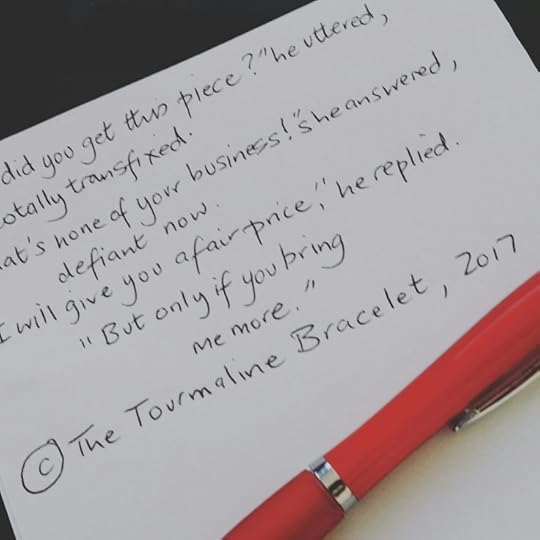 did you get this piece?" he uttered,
totally transfixed.
hat's none of your business!" she answered,
defiant now.
I will give you a fair price," he replied.
"But only if you bring
me more."
© The Tourmaline Bracelet, 2017